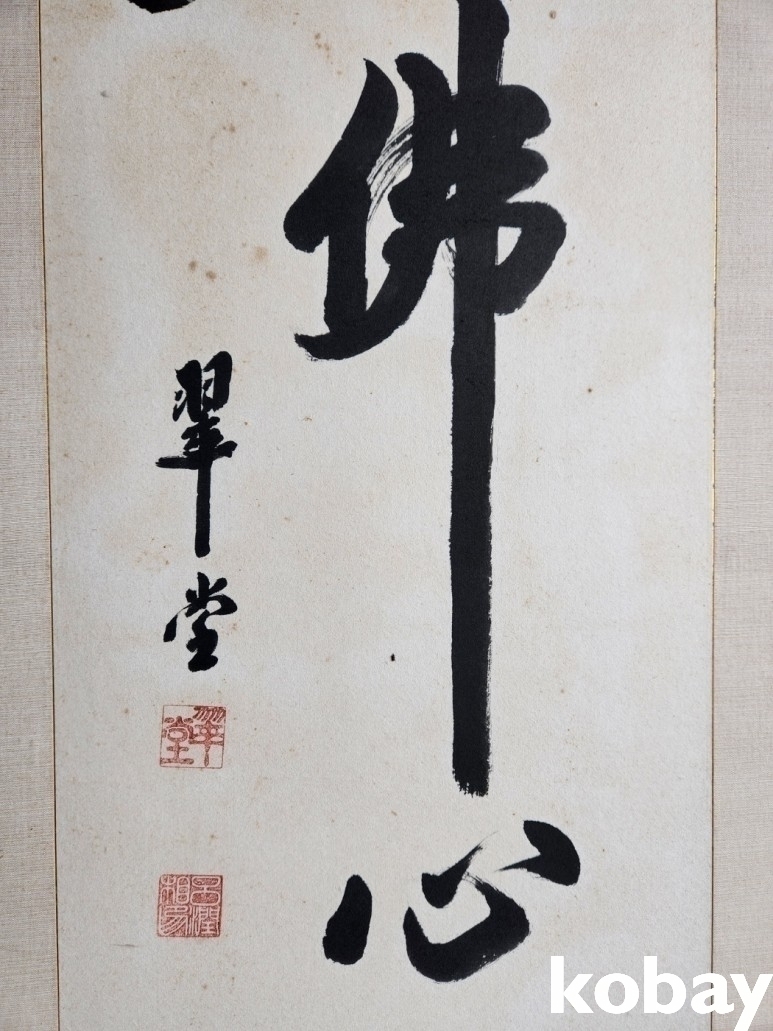 佛心
翠堂
翠堂
kobay